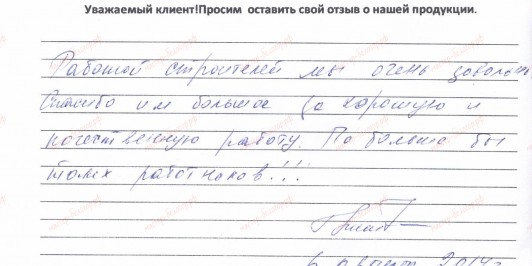 Уважаемый клиент!Просим оставить свой отзыв о нашей продукции.
Работой строителей мы очень довольны
Спасибо им большое за хорошую и
качественную работу. По больше бы
таких работников!!!
6 август 2014г